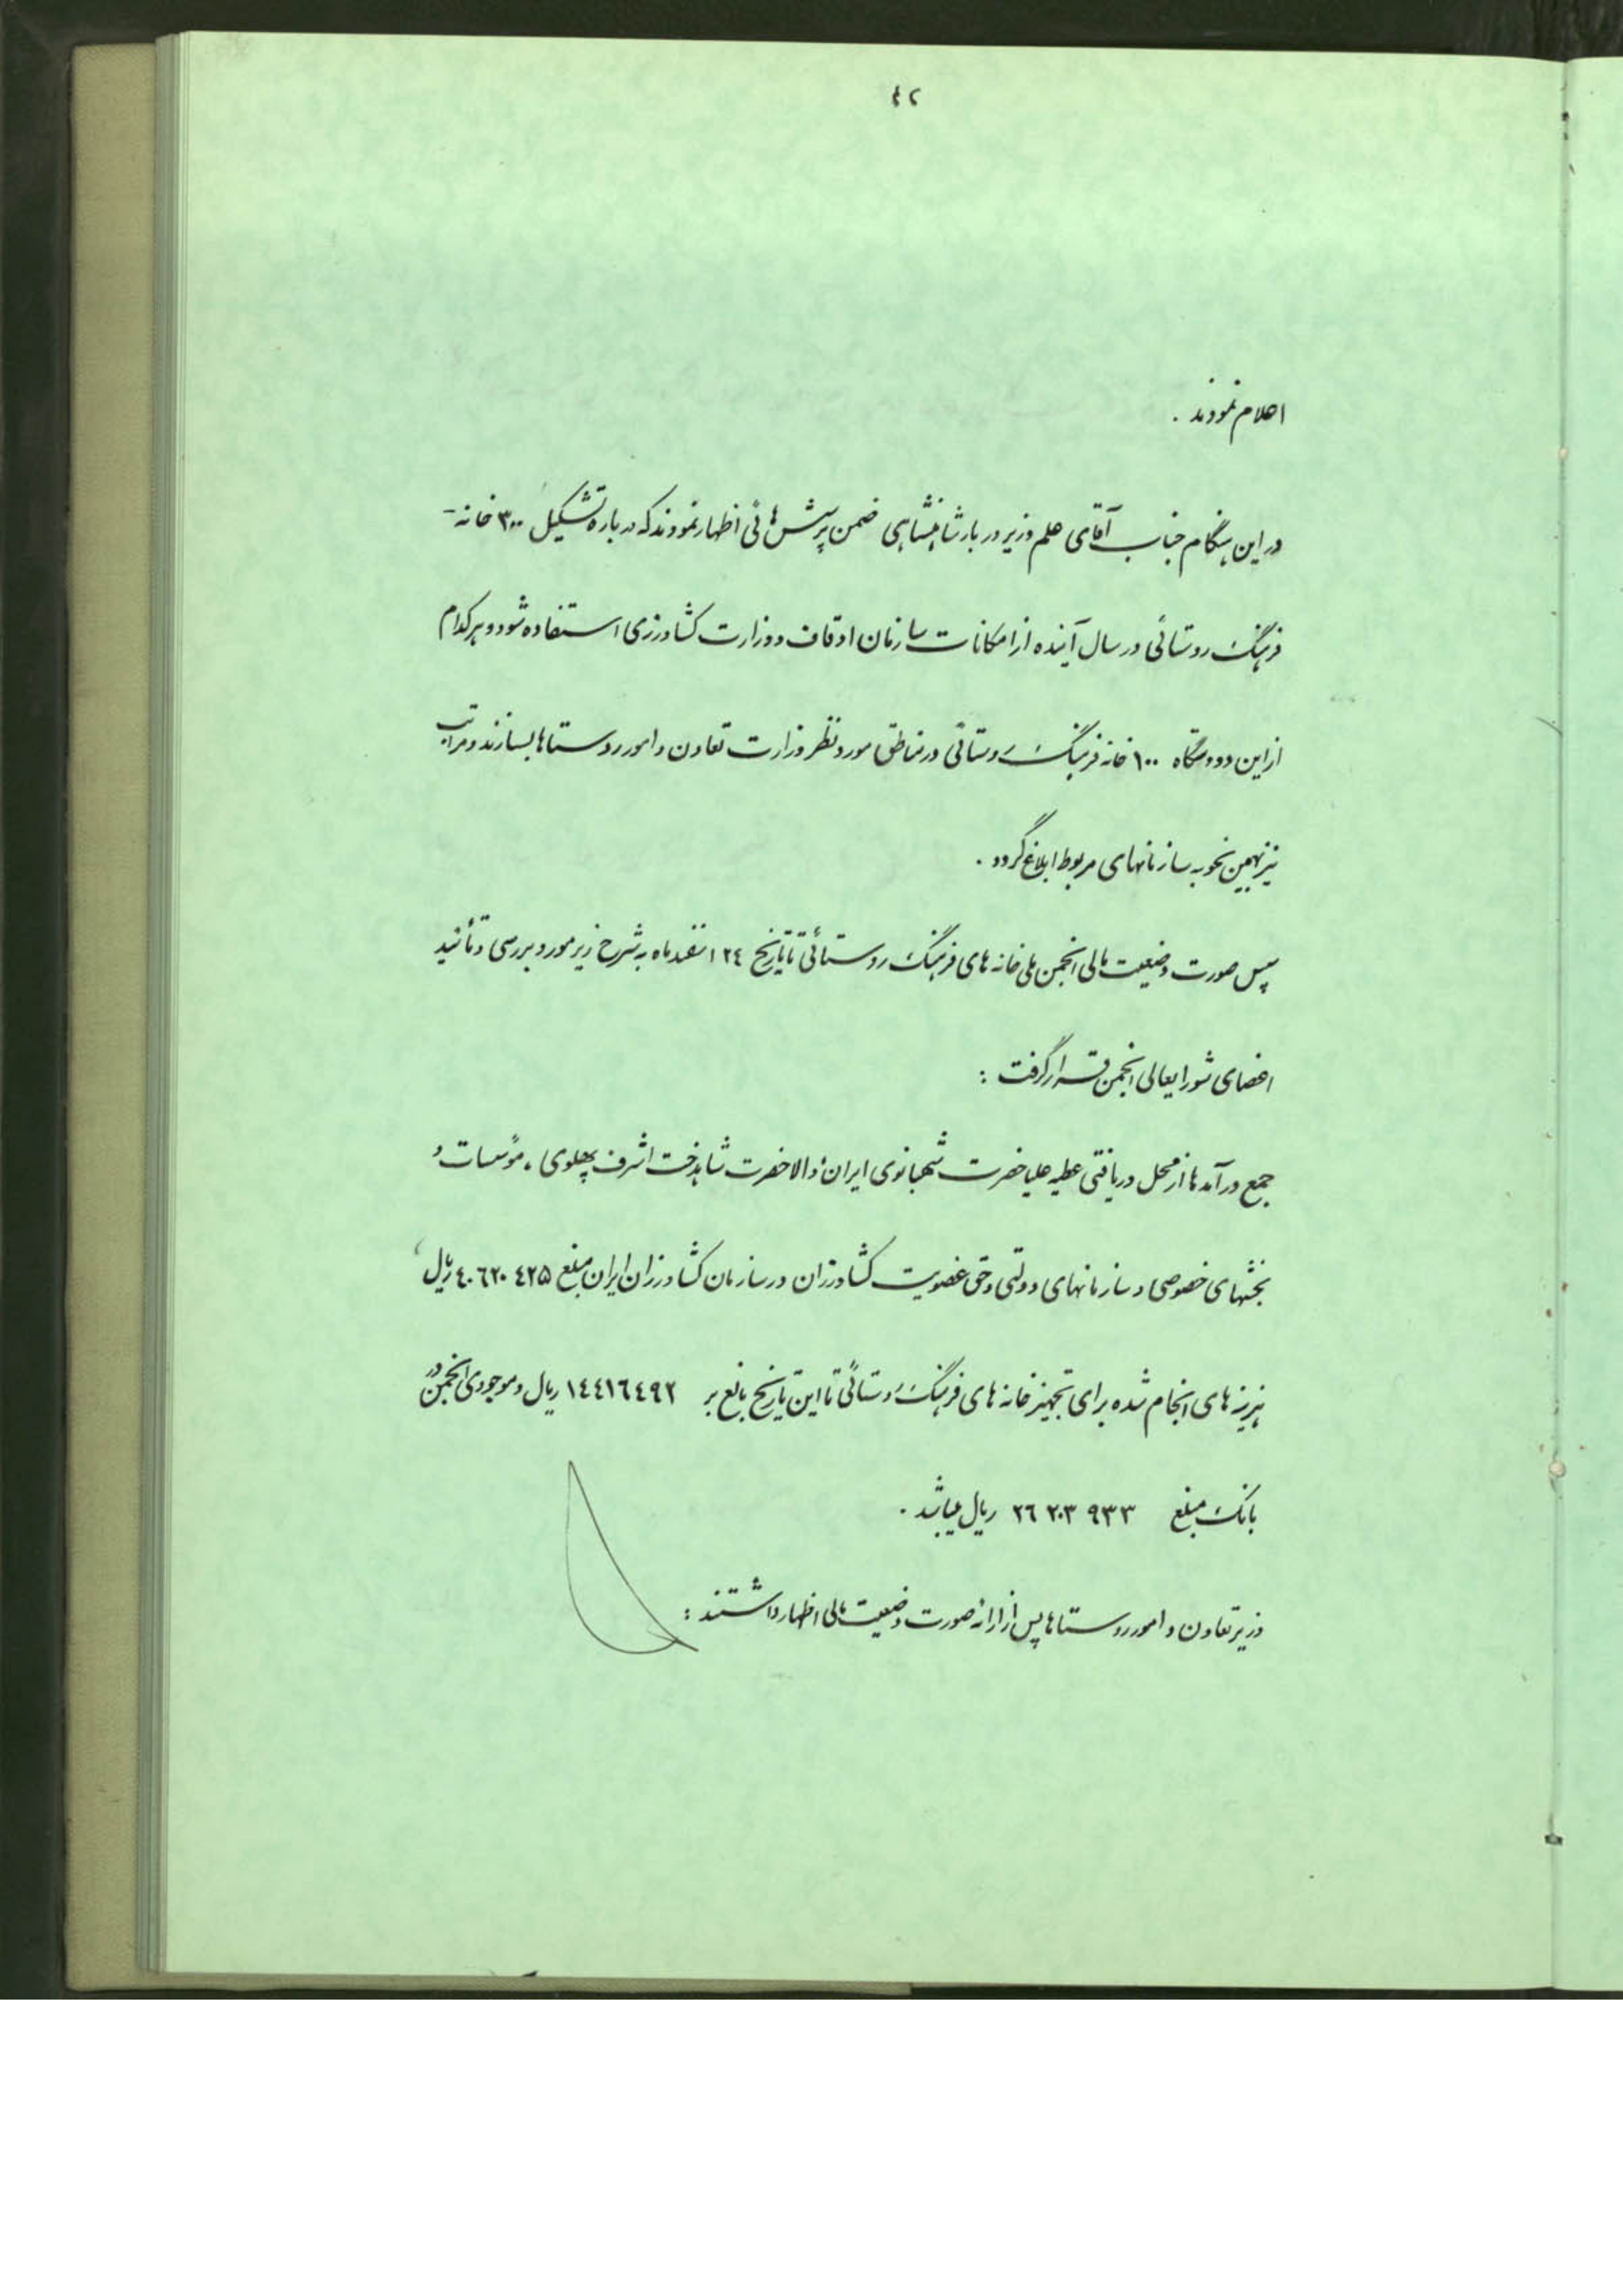 ۴۲
اعلام نمودند .
در این هنگام جناب آقای علم وزیر دربار شاهنشاهی ضمن پرسش هائی اظهار نمودند که درباره تشکیل ۳۰۰ خانه -
فرهنگ روستائی در سال آینده از امکانات سازمان اوقاف و وزارت کشاورزی استفاده شود و هر کدام
از این دو دستگاه ۱۰۰ خانه فرهنگ روستائی در مناطق مورد نظر وزارت تعاون و امور روستاها بسازند و مراتب
نیز بهمین نحو به سازمانهای مربوط ابلاغ گردد .
سپس صورت وضعیت مالی انجمن ملی خانه های فرهنگ روستائی تا تاریخ ۲۴ اسفند ماه به شرح زیر مورد بررسی و تأئید
اعضای شورایعالی انجمن قرار گرفت :
جمع درآمدها از محل دریافتی عطیه علیاحضرت شهبانوی ایران و والاحضرت شاهدخت اشرف پهلوی ، مؤسسات و
بخشهای خصوصی و سازمانهای دولتی و حق عضویت کشاورزان در سازمان کشاورزان ایران مبلغ ۴۰۶۲۰۴۲۵ ریال ،
هزینه های انجام شده برای تجهیز خانه های فرهنگ روستائی تا این تاریخ بالغ بر ۱۴۴۱۶۴۹۲ ریال و موجودی انجمن در
بانک مبلغ ۲۶۲۰۳۹۳۳ ریال میباشد .
وزیر تعاون و امور روستاها پس از ارائه صورت وضعیت مالی اظهار داشتند :